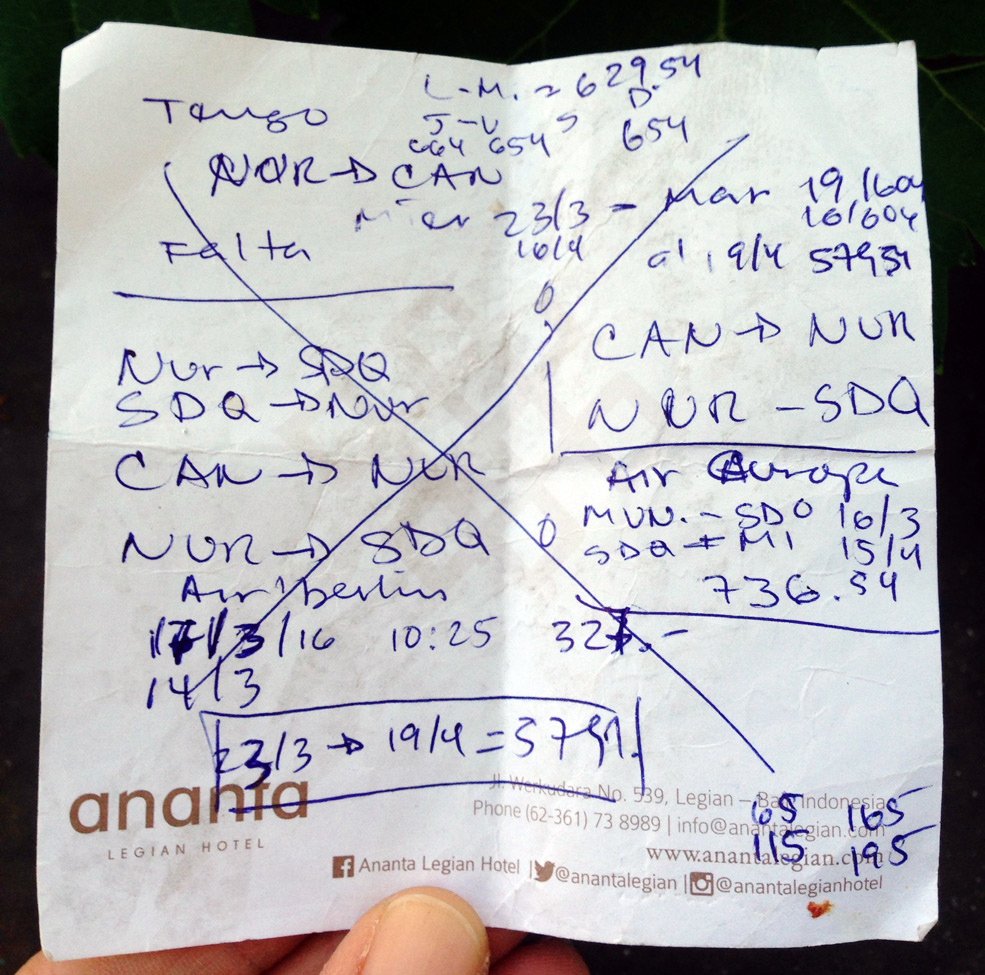 L-M. = 62954
Tango J-V S D.
664 654 654
NUR → CAN
Mier 23/3 - Mar 19/604
16/4 16/604
Falta al 19/4 57951
CAN → NUR
NUR - SDQ
Nur → SDQ
SDQ → Nur
CAN → NUR
NUR → SDQ
Air Europa
MUN. - SDQ 16/3
SDQ MI 15/4
736.54
Air berlin
17/3/16 10:25 327.-
14/3
23/3 → 19/4 = 5791
ananta
LEGIAN HOTEL
Jl. Werkudara No. 539, Legian – Bali Indonesia
Phone (62-361) 73 8989 | info@anantalegian.com
www.anantalegian.com
65 165
115 195
Ananta Legian Hotel | @anantalegian | @anantalegianhotel